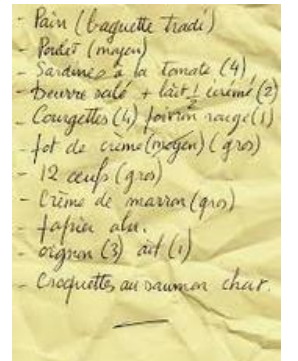 - Pain (baguette tradi)
- Poulet (moyen)
- Sardines à la tomate (4)
- beurre salé + lait 1/2 écrémé (2)
- Courgettes (4) poivron rouge (1)
- pot de crème (moyen) (gros)
- 12 œufs (gros)
- Crème de marron (gros)
- papier alu.
- oignon (3) ail (1)
- Croquettes au saumon chat.